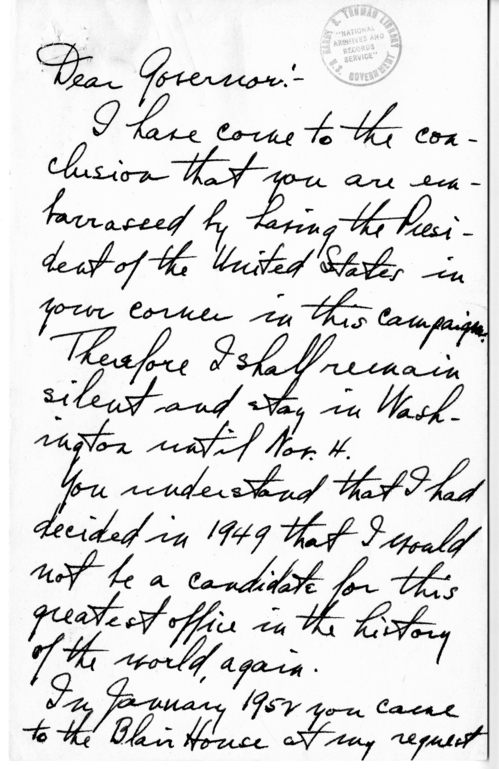 HARRY S. TRUMAN LIBRARY
"NATIONAL
ARCHIVES AND
RECORDS
SERVICE"
U.S. GOVERNMENT
Dear Governor:-
I have come to the con-
clusion that you are em-
barrassed by having the Presi-
dent of the United States in
your corner in this campaign.
Therefore I shall remain
silent and stay in Wash-
ington until Nov. 4.
You understand that I had
decided in 1949 that I would
not be a candidate for this
greatest office in the history
of the world, again.
In January 1952 you came
to the Blair House at my request